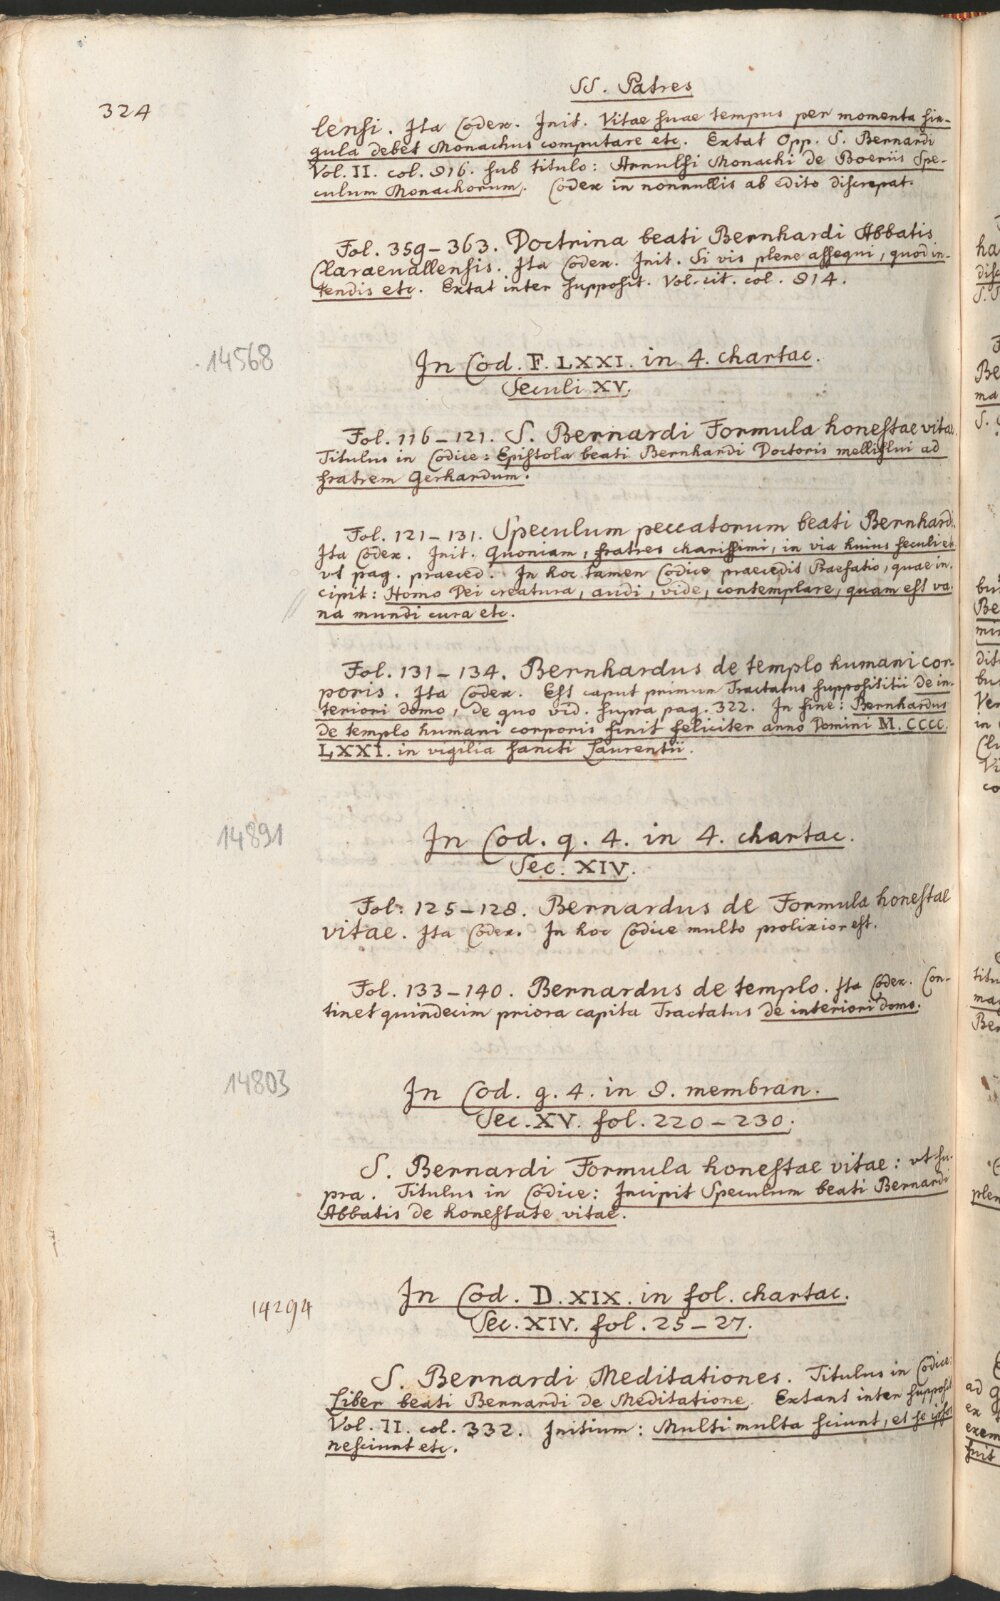 324
SS. Patres
lensi. Ita Codex. Init. Vitae suae tempus per momenta sin-
gula debet Monachus computare etc. Extat Opp. S. Bernardi
Vol. II. col. 816. sub titulo: Arnulfi Monachi de Boeriis Spe-
culum Monachorum. Codex in nonnullis ab edito discrepat.
Fol. 359–363. Doctrina beati Bernhardi Abbatis
Claraevallensis. Ita Codex. Init. Si vis plene assequi, quod in-
tendis etc. Extat inter supposit. Vol. cit. col. 814.
14568
In Cod. F. LXXI. in 4. chartac.
Seculi XV.
Fol. 116–121. S. Bernardi Formula honestae vitae
Titulus in Codice: Epistola beati Bernhardi Doctoris melliflui ad
fratrem Gerhardum.
Fol. 121–131. Speculum peccatorum beati Bernhardi.
Ita Codex. Init. Quoniam, fratres charissimi, in via huius seculi etc.
ut pag. praeced. In hoc tamen Codice praecedit Praefatio, quae in-
cipit: Homo Dei creatura, audi, vide, contemplare, quam est va-
na mundi cura etc.
Fol. 131–134. Bernhardus de templo humani cor-
poris. Ita Codex. Est caput primum Tractatus supposititii de in-
teriori domo, de quo vid. supra pag. 322. In fine: Bernhardus
de templo humani corporis finit feliciter anno Domini M.CCCC.
LXXI. in vigilia sancti Laurentii.
14891
In Cod. q. 4. in 4. chartac.
Sec. XIV.
Fol: 125–128. Bernardus de Formula honestae
vitae. Ita Codex. In hoc Codice multo prolixior est.
Fol. 133–140. Bernardus de templo. Ita Codex. Con-
tinet quindecim priora capita Tractatus de interiori domo.
14803
In Cod. g. 4. in 8. membran.
Sec. XV. fol. 220–230.
S. Bernardi Formula honestae vitae: ut su-
pra. Titulus in Codice: Incipit Speculum beati Bernardi
Abbatis de honestate vitae.
14294
In Cod. D. XIX. in fol. chartac.
Sec. XIV. fol. 25–27.
S. Bernardi Meditationes. Titulus in Codice:
Liber beati Bernardi de Meditatione. Extant inter supposit.
Vol. II. col. 332. Initium: Multi multa sciunt, et se ipsos
nesciunt etc.